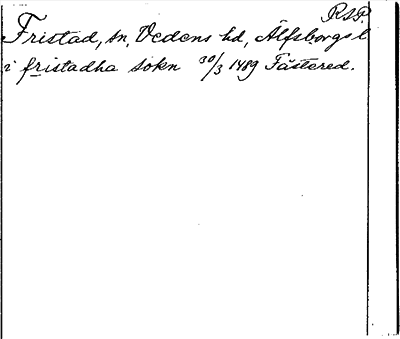 RSP.
Fristad, sn, Vedens hd, Älfsborgs l
i fristadha sokn 30/3 1489 Fästered.